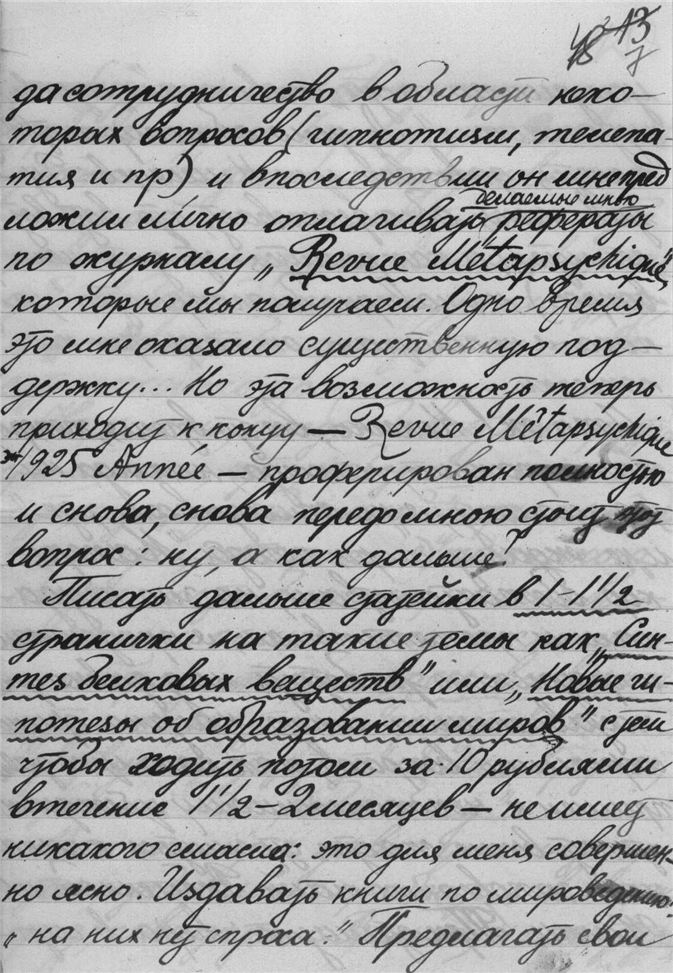 13
7
да сотрудничество в области неко-
торых вопросов (гипнотизм, телепа-
тия и пр) и впоследствии он мне пред
делаемые мною
ложил лично оплачивать рефераты
по журналу „Revue Métapsychique"
которые мы получаем. Одно время
это мне оказало существенную под-
держку... Но эта возможность теперь
приходит к концу — Revue Métapsychique
1925 Année — прореферирован полностью
и снова, снова передо мною стоит этот
вопрос: ну, а как дальше?
Писать дальше статейки в 1-1 1/2
странички на такие темы как „Син-
тез белковых веществ" или „Новые ги-
потезы об образовании миров" с тем
чтобы ходить потом за 10 рублями
в течение 1 1/2 - 2 месяцев — не имеет
никакого смысла: это для меня совершен-
но ясно. Издавать книги по мироведению:
„на них нет спроса." Предлагать свои